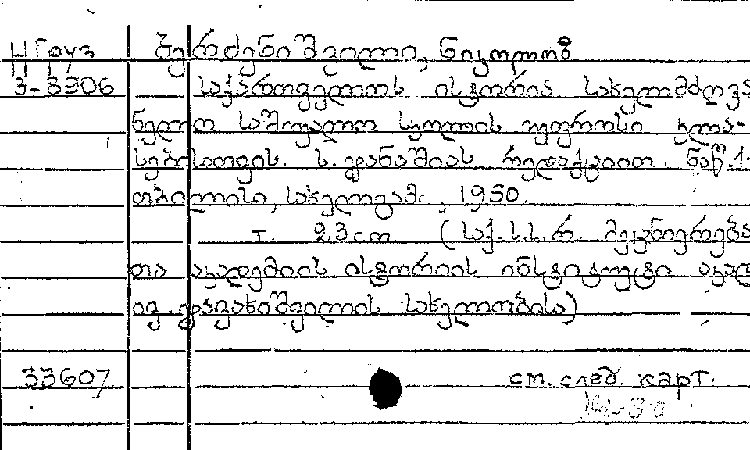 НГруз ბერძენიშვილი, ნიკოლოზ
З-3306 საქართველოს ისტორია სახელმძღვა
ნელო საშუალო სკოლის უფროსი კლა-
სებისათვის. ს. ჯანაშიას რედაქციით. ნაწ. 1.
თბილისი, სახელგამ., 1950.
т. 23 cm (საქ. ს.ს.რ. მეცნიერება
თა აკადემიის ისტორიის ინსტიტუტი აკად
ივ. ჯავახიშვილის სახელობისა)
33607 ст. след. карт.